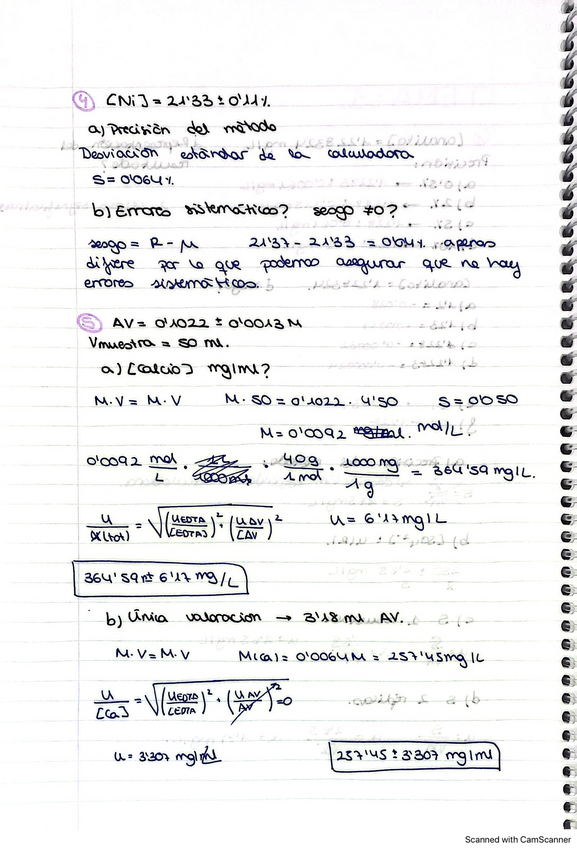 4 [Ni] = 21'33 ± 0'11%
a) Precisión del método
Desviación estándar de la calculadora
S = 0'064%
b) Errores sistemático? sesgo ≠ 0?
sesgo = R - μ 21'37 - 21'33 = 0'04% apenas
difiere por lo que podemos asegurar que no hay
errores sistemáticos.
5 AV = 0'1022 ± 0'0013 M
Vmuestra = 50 ml.
a) [Calcio] mg/ml?
M·V = M·V M·50 = 0'1022 · 4'50 S = 0'050
M = 0'0092 mol/L.
0'0092 mol/L · 40g/1mol · 1000mg/1g = 364'59 mg/L.
u/X(tot) = √(uEDTA/[EDTA])² + (uAV/[AV])² u = 6'17 mg/L
364'59 ± 6'17 mg/L
b) Única valoracion → 3'18 ml AV.
M·V = M·V M(Ca) = 0'0064M = 257'45 mg/L
u/[Ca] = √(uEDTA/[EDTA])² + (uAV/AV)² = 0
u = 3'307 mg/ml
257'45 ± 3'307 mg/ml
Scanned with CamScanner